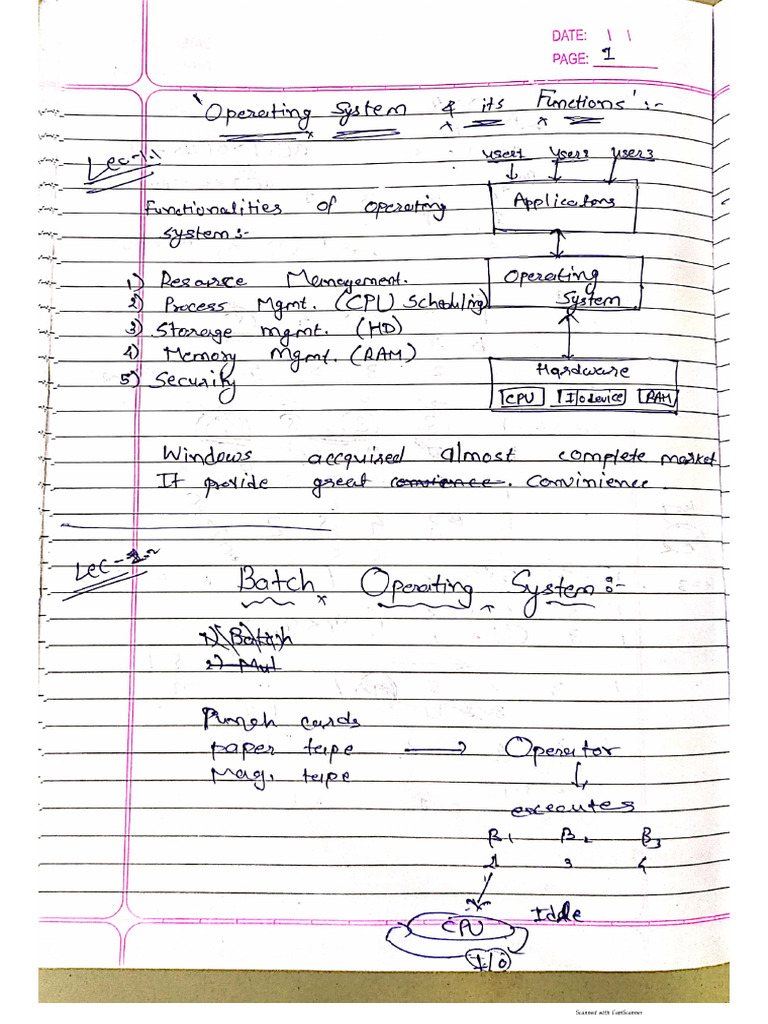 DATE: \ \
PAGE: 1
'Operating System & its Functions':-
Lec-1.1
user1 user2 user3
Functionalities of operating
system:-
Applications
1) Resource Management.
2) Process Mgmt. (CPU scheduling)
3) Storage mgmt. (HD)
4) Memory Mgmt. (RAM)
5) Security
Operating
System
Hardware
CPU I/O device RAM
Windows accquired almost complete market
It provide great convience. Convinience.
Lec-1.2
Batch Operating System:-
1) Batch
2) Mul
Punch cards
paper tape → Operator
Mag. tape
executes
B1 B2 B3
2 3 4
CPU Iddle
I/O
Scanned with CamScanner